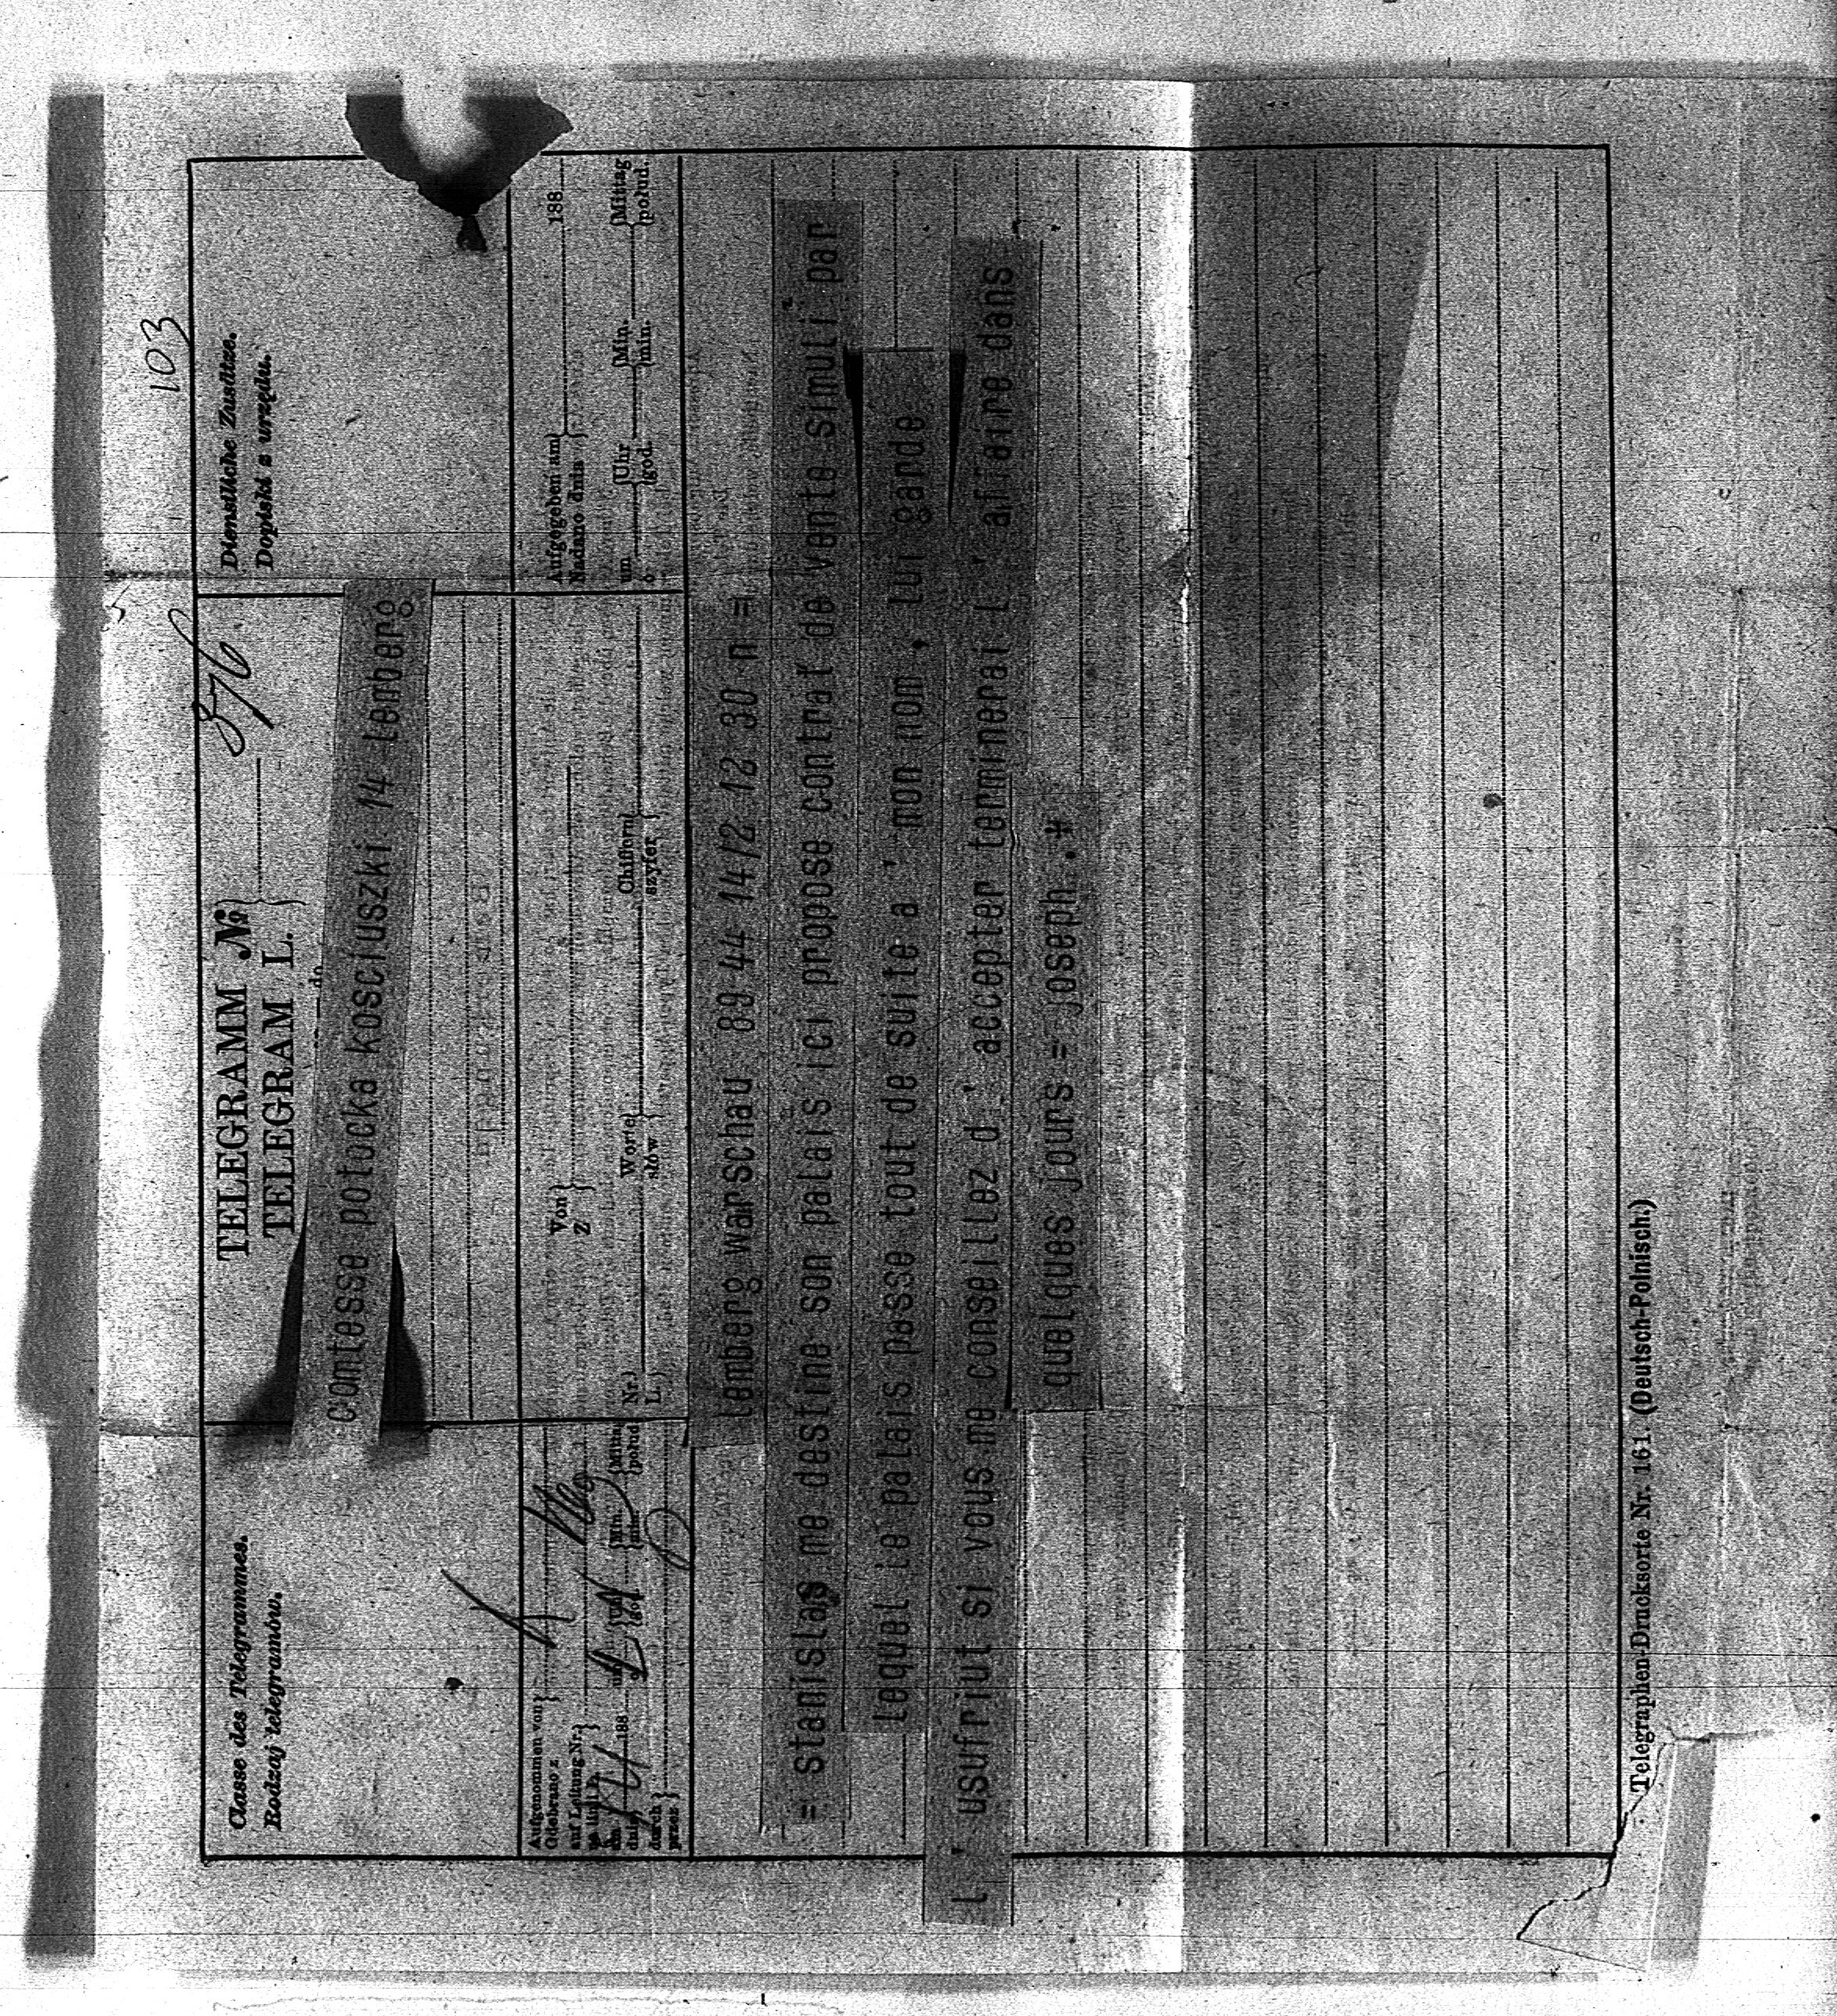 103
Classe des Telegrammes.
Rodzaj telegramów.
TELEGRAMM №
TELEGRAM L.
376
Dienstliche Zusätze.
Dopiski z urzędu.
comtesse potocka kosciuszki 14 lemberg
Aufgenommen von
Odebrano z
auf Leitung Nr.
na linii l.
am
dnia 14 188 um Uhr Min. Mittag
o god. min. połud.
durch
przez
Von
Z
Nr. Worte Chiffern
L. słów szyfer
Aufgegeben am 188
Nadano dnia
um Uhr Min. Mittag
o god. min. połud.
lemberg warschau 89 44 14/2 12 30 n =
= stanislas me destine son palais ici propose contrat de vente simuli par
lequel le palais passe tout de suite a' mon nom , lui gande
l ' usufriut si vous me conseillez d ' accepter terminerai l ' affaire dans
quelques jours = joseph .+
Telegraphen-Drucksorte Nr. 161. (Deutsch-Polnisch.)